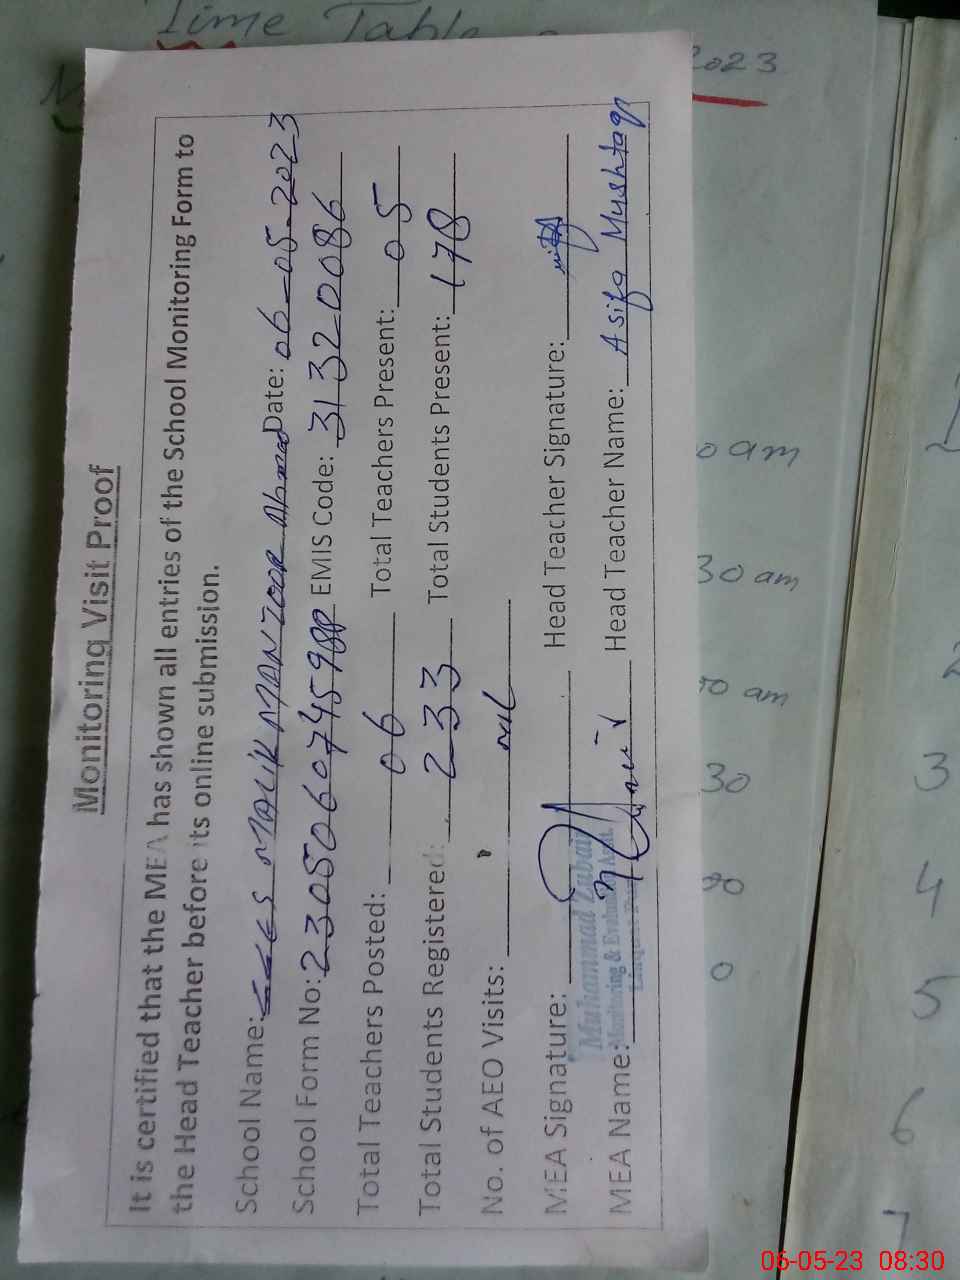 Time Table
2023
Monitoring Visit Proof
It is certified that the MEA has shown all entries of the School Monitoring Form to
the Head Teacher before its online submission.
School Name: MALIK MANZOOR Ahmad Date: 06-05-2023
School Form No: EMIS Code: 31320086
Total Teachers Posted: 06 Total Teachers Present: 05
Total Students Registered: 233 Total Students Present: 178
No. of AEO Visits: nil
MEA Signature: Head Teacher Signature:
Muhammad Zubair
Monitoring & Evaluation Asstt.
MEA Name: Head Teacher Name: Asifa Mushtaq
0 am
30 am
am
30
0
3
4
5
6
7
06-05-23 08:30